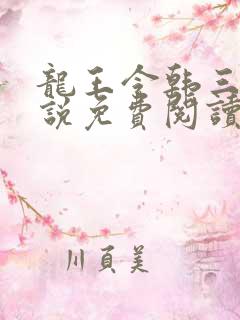 龍王令韩三
說免費閱讀
川頁美